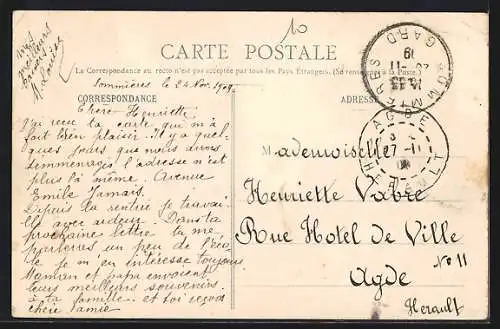 10
CARTE POSTALE
La Correspondance au recto n'est pas acceptée par tous les Pays Etrangers. (Se renseigner à la Poste.)
Sommières le 24 Nov. 1909
CORRESPONDANCE
ADRESSE
Chère Henriette
J'ai reçu ta carte qui m'a
fait bien plaisir. Il y a quel-
ques jours que nous avons
demmenagé l'adresse n'est
plus la même. Avenue
Emile Jamais.
Depuis la rentrée je travail-
le avec ardeur. Dans ta
prochaine lettre tu me
parleras un peu de l'éco-
le je m'en intéresse toujours
Maman et papa envoient
leurs meilleurs souvenirs
à ta famille et toi reçois
chère amie
mes
meilleurs
baisers
Mademoiselle
Henriette Vabre
Rue Hotel de Ville
No 11
Agde
Herault
SOMMIERES
GARD
AGDE
HERAULT